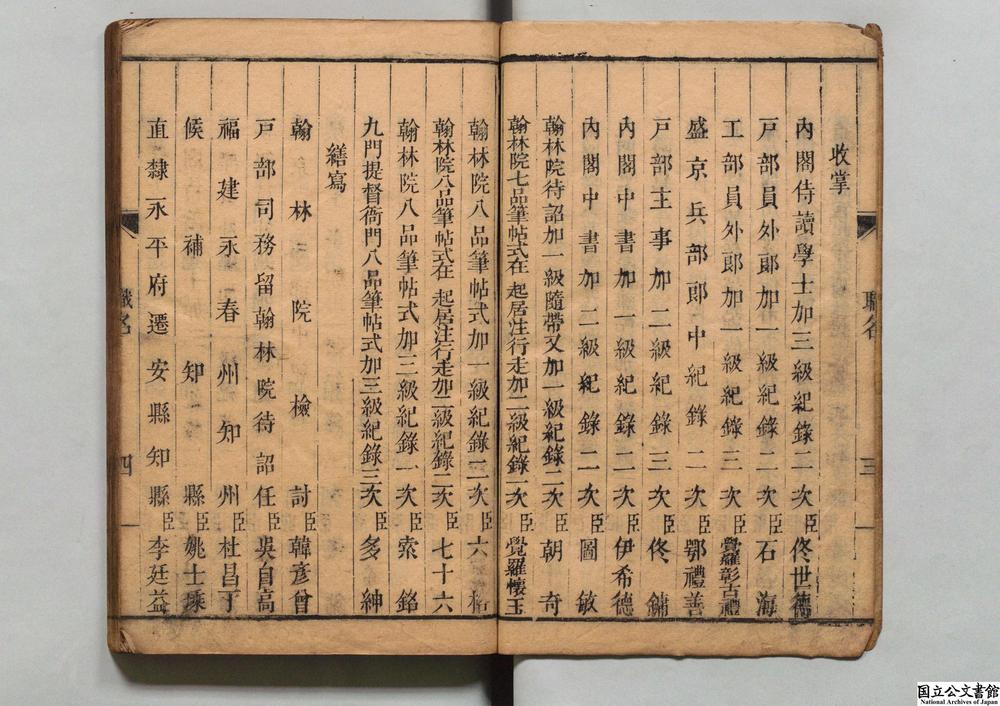 收掌
內閣侍讀學士加三級紀錄二次臣佟世德
戶部員外郎加一級紀錄二次臣石海
工部員外郎加一級紀錄三次臣覺羅彰古禮
盛京兵部郎中紀錄二次臣鄂禮善
戶部主事加二級紀錄三次臣佟鏞
內閣中書加一級紀錄二次臣伊希德
內閣中書加二級紀錄二次臣圖敏
翰林院待詔加一級隨帶又加一級紀錄二次臣朝奇
翰林院七品筆帖式在起居注行走加二級紀錄一次臣覺羅懷玉
職名
三
翰林院八品筆帖式加一級紀錄二次臣六格
翰林院八品筆帖式在起居注行走加二級紀錄二次臣七十六
翰林院八品筆帖式加三級紀錄一次臣索銘
九門提督衙門八品筆帖式加三級紀錄三次臣多紳
繕寫
翰林院檢討臣韓彥曾
戶部司務留翰林院待詔任臣吳自高
福建永春州知州臣杜昌丁
候補知縣臣姚士
直隸永平府遷安縣知縣臣李廷益
職名
四
国立公文書館
National Archives of Japan